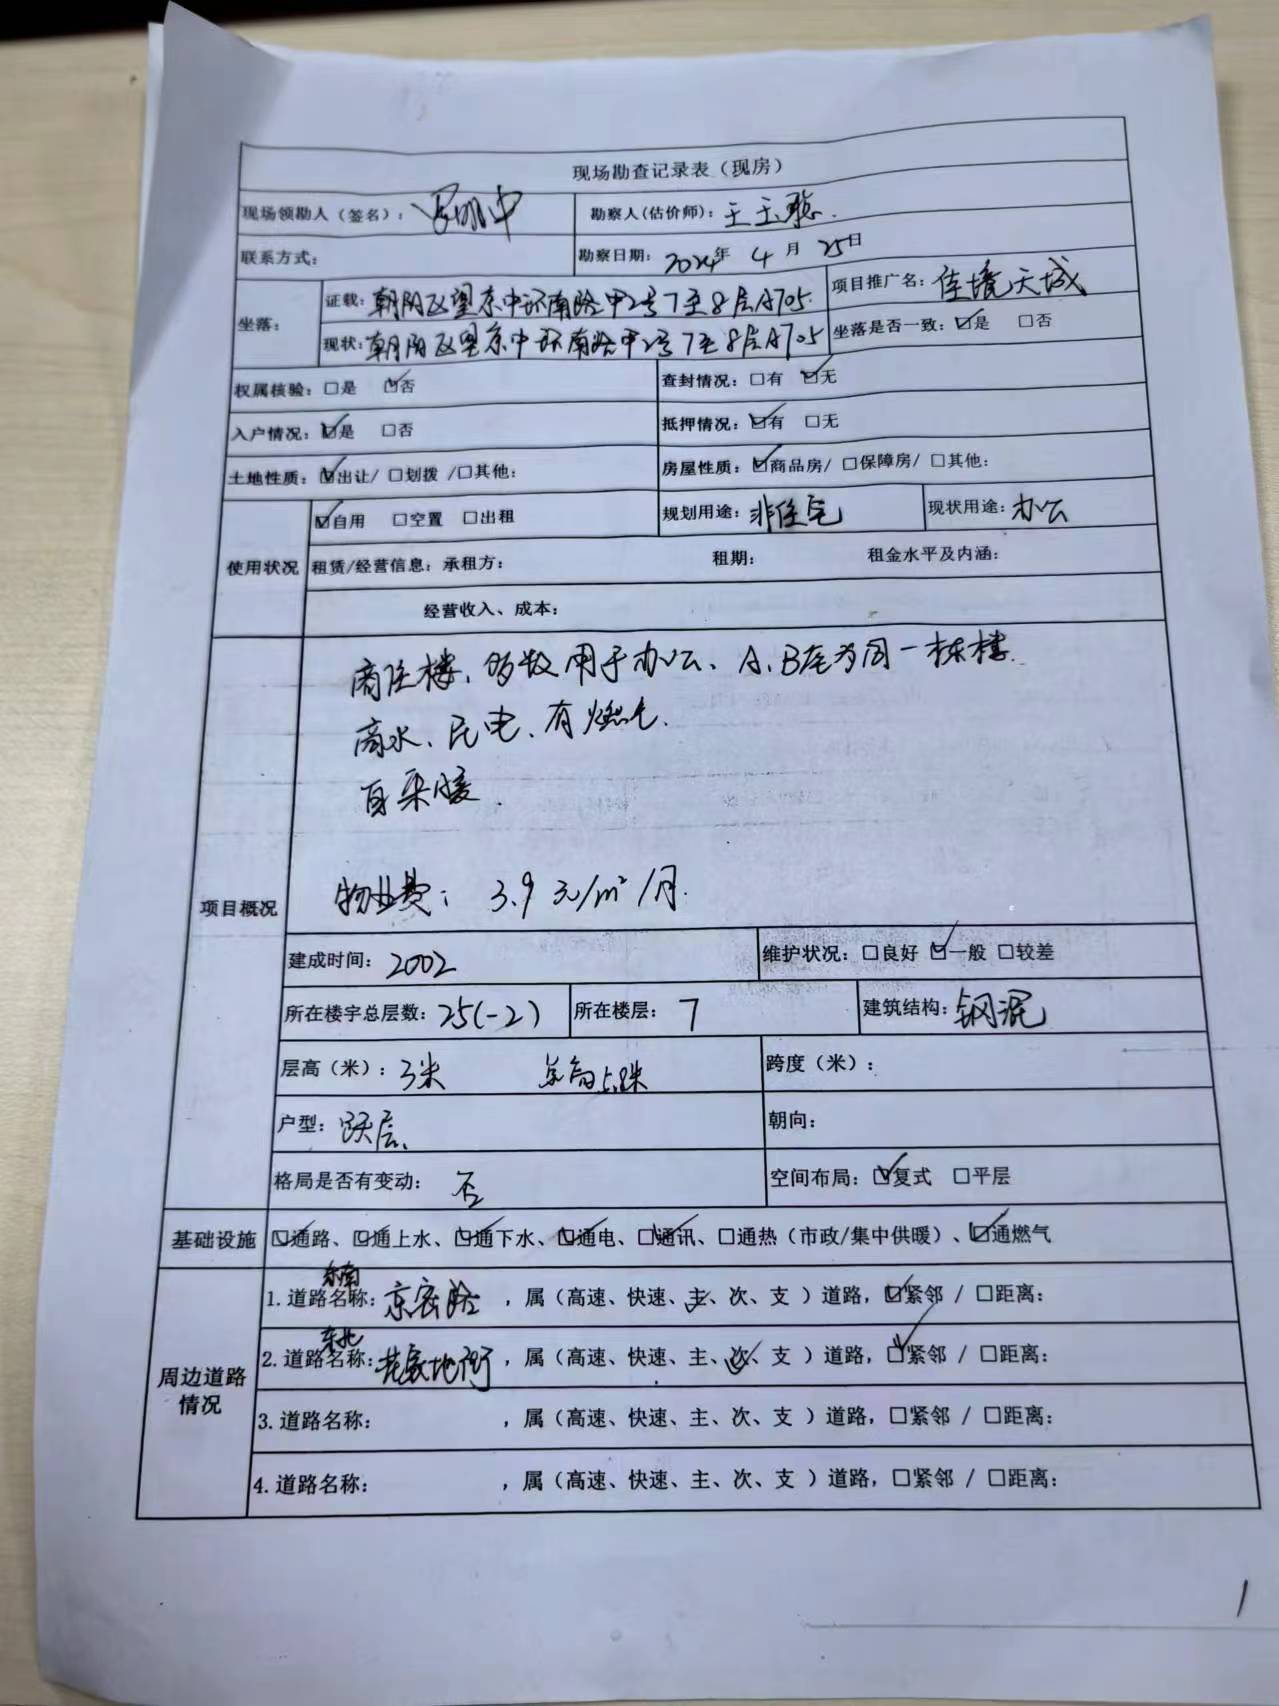 现场勘查记录表（现房）
现场领勘人（签名）：
勘察人(估价师)：王玉聪.
联系方式：
勘察日期：2024年 4 月 25日
坐落：
证载：朝阳区望京中环南路甲2号7至8层A705.
项目推广名：佳境天城
现状：朝阳区望京中环南路甲2号7至8层A705
坐落是否一致：☑是 □否
权属核验：□是 ☑否
查封情况：□有 ☑无
入户情况：☑是 □否
抵押情况：☑有 □无
土地性质：☑出让/ □划拨 /□其他：
房屋性质：☑商品房/ □保障房/ □其他：
使用状况
☑自用 □空置 □出租
规划用途：非住宅
现状用途：办公
租赁/经营信息：承租方： 租期： 租金水平及内涵：
经营收入、成本：
项目概况
商住楼，多数用于办公、A、B座为同一栋楼.
商水、民电、有燃气.
自采暖.
物业费：3.9 元/m²/月.
建成时间：2002
维护状况：□良好 ☑一般 □较差
所在楼宇总层数：25(-2)
所在楼层：7
建筑结构：钢混
层高（米）：3米
跨度（米）：
户型：跃层、
朝向：
格局是否有变动：否
空间布局：☑复式 □平层
基础设施
☑通路、☑通上水、☑通下水、☑通电、☑通讯、□通热（市政/集中供暖）、☑通燃气
周边道路情况
东南
1.道路名称：京密路，属（高速、快速、主、次、支 ）道路，☑紧邻 / □距离：
东北
2.道路名称：花家地街，属（高速、快速、主、次、支 ）道路，☑紧邻 / □距离：
3.道路名称： ，属（高速、快速、主、次、支 ）道路，□紧邻 / □距离：
4.道路名称： ，属（高速、快速、主、次、支 ）道路，□紧邻 / □距离：
1